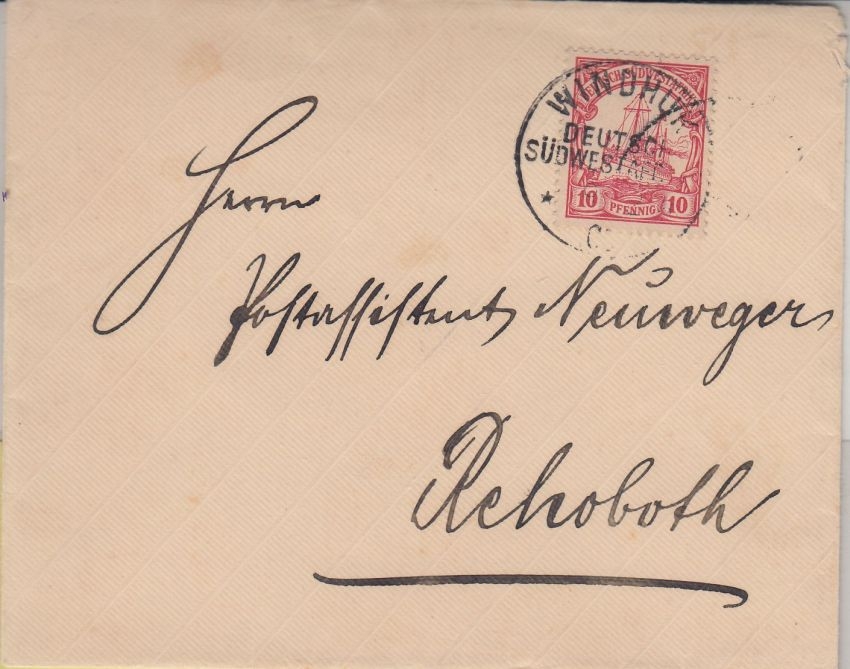 DEUTSCH-SÜDWESTAFRIKA
10 PFENNIG 10
WINDHUK
DEUTSCH
SÜDWESTAFR
Herrn
Postassistent Neuweger
Rehoboth